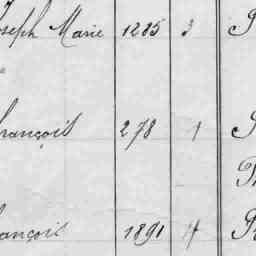 Joseph Marie 1285 3
François 278 1
François 1891 4